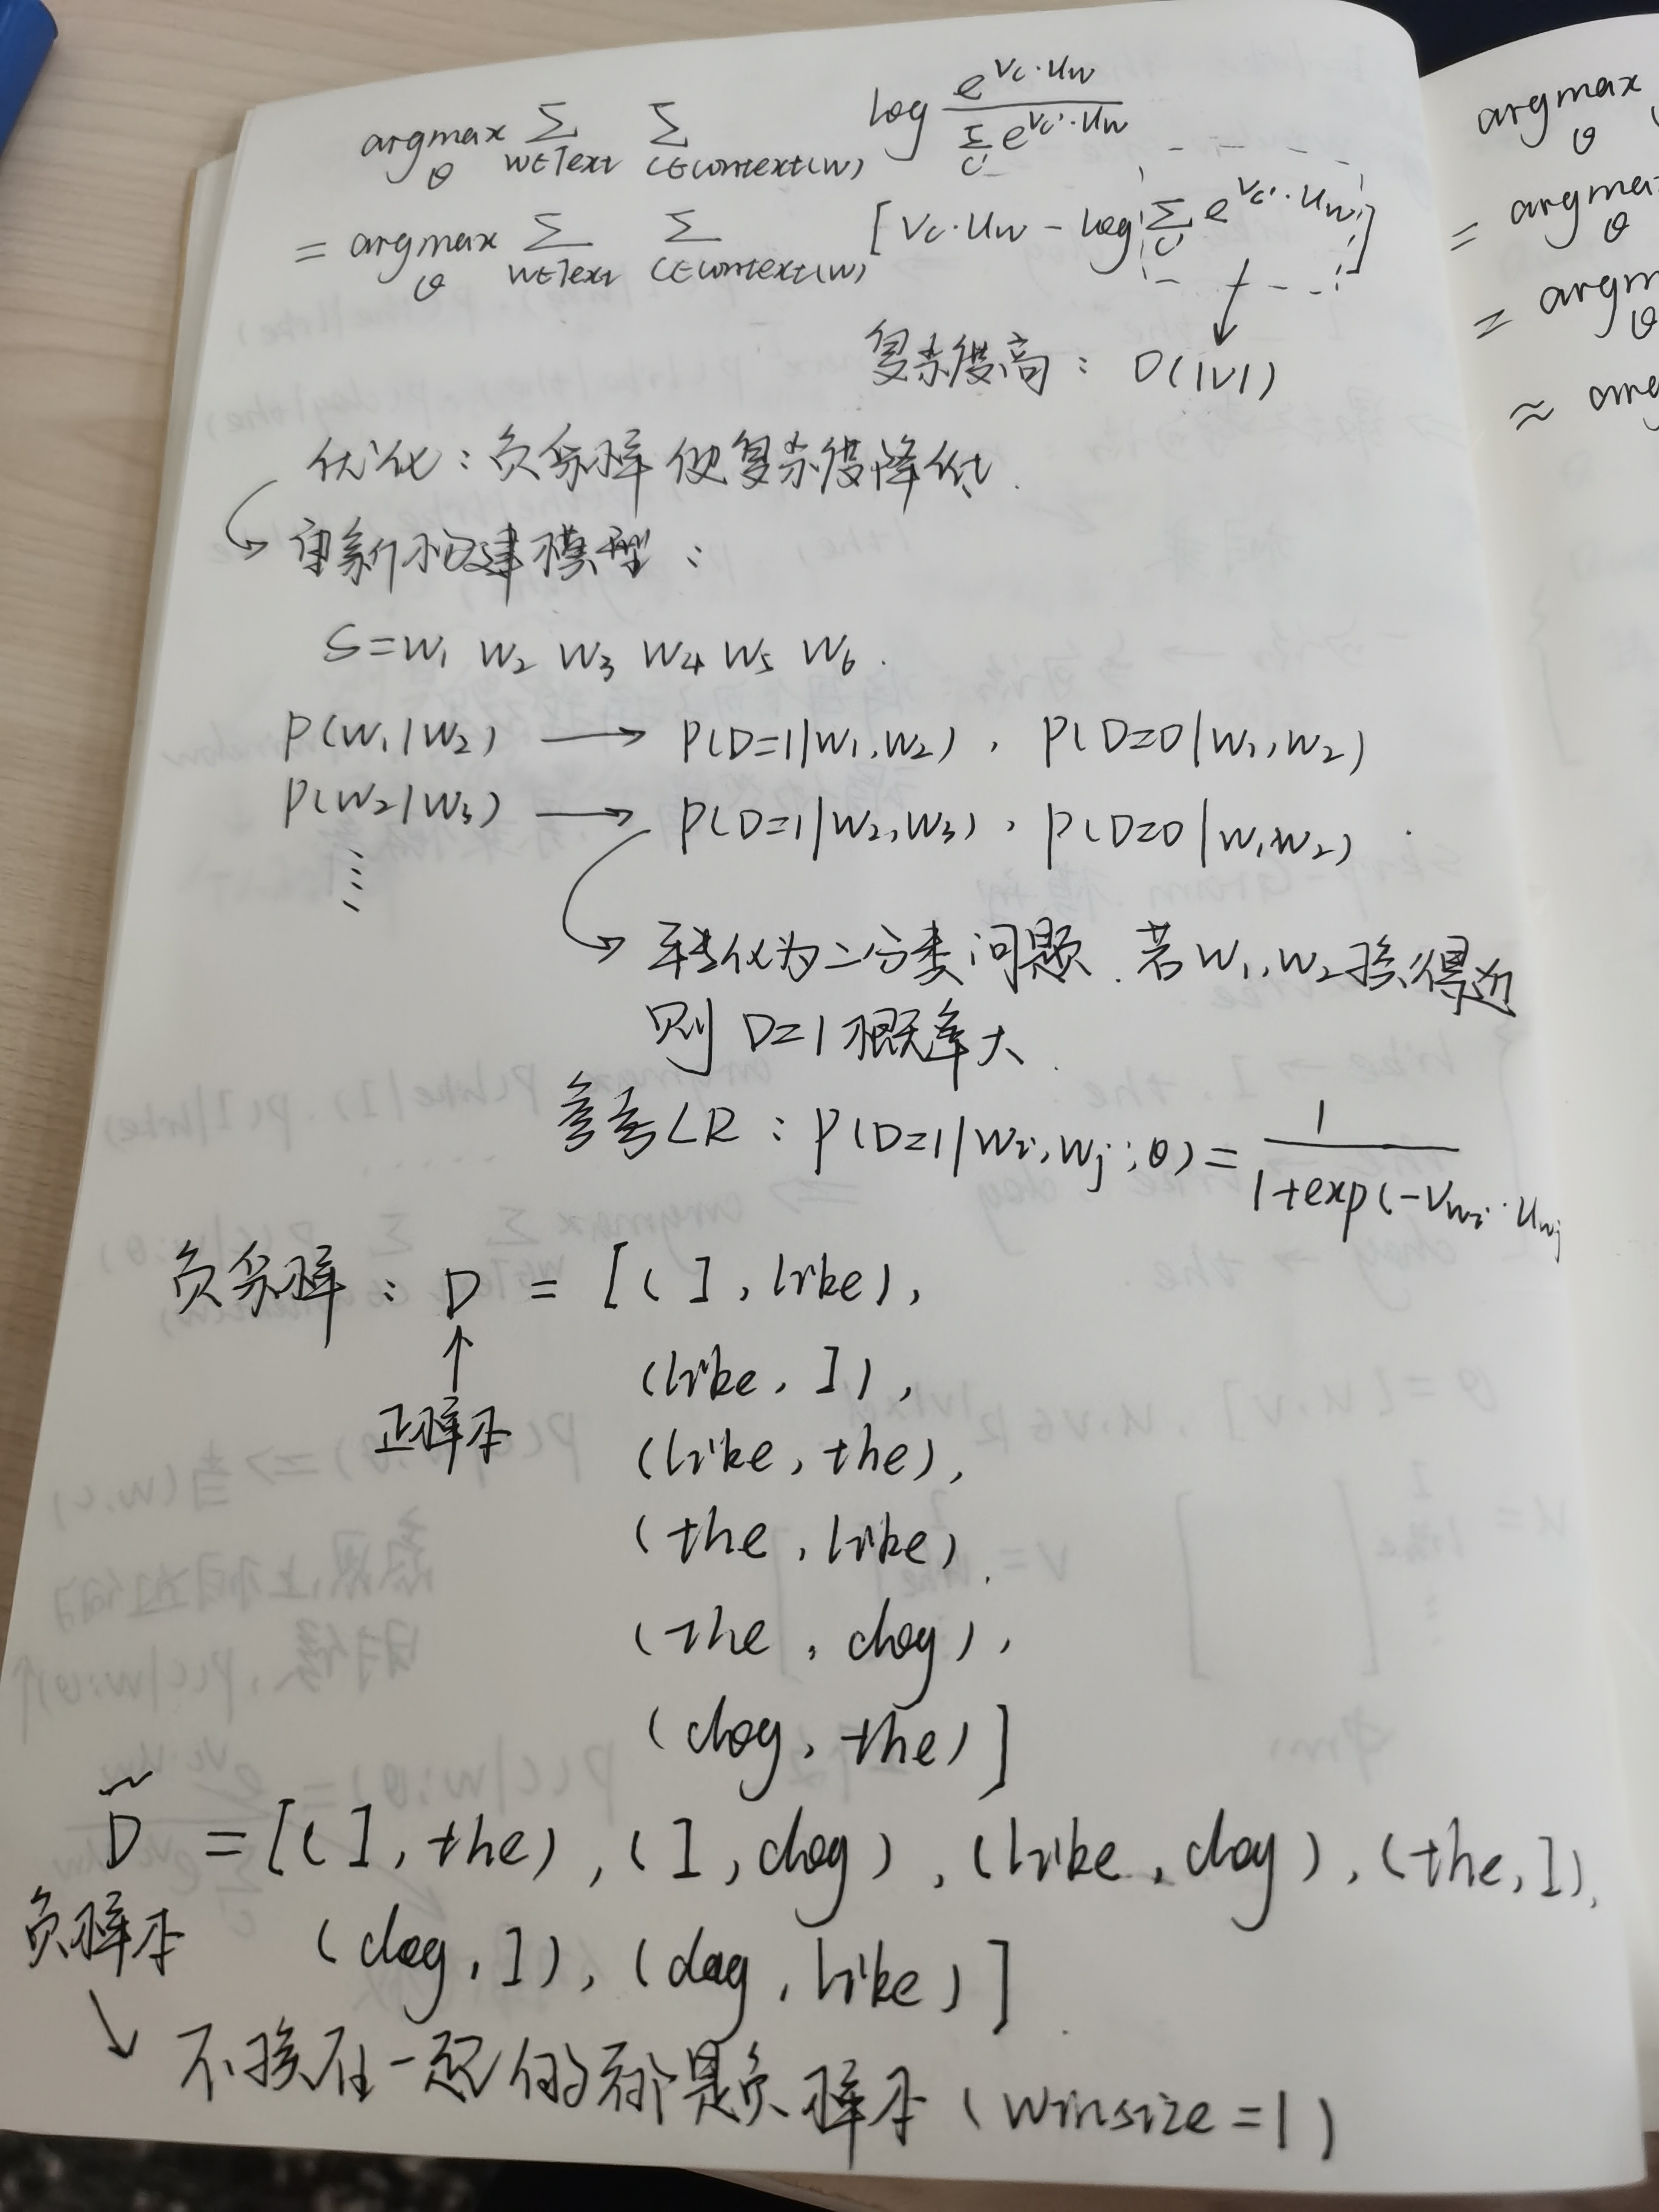 argmax_θ Σ_{w∈Text} Σ_{c∈context(w)} log e^{Vc·Uw} / Σ_{c'} e^{Vc'·Uw}
= argmax_θ Σ_{w∈Text} Σ_{c∈context(w)} [Vc·Uw - log Σ_{c'} e^{Vc'·Uw}]
复杂度高: O(|V|)
优化:负采样使复杂度降低.
重新构建模型:
S=W₁ W₂ W₃ W₄ W₅ W₆.
P(W₁|W₂) → P(D=1|W₁,W₂), P(D=0|W₁,W₂)
P(W₂|W₃) → P(D=1|W₂,W₃), P(D=0|W₁W₂)
⋮
转化为二分类问题.若W₁,W₂挨得近
则 D=1概率大.
参考LR: P(D=1|Wi,Wj;θ)= 1 / 1+exp(-V_{wi}·U_{wj}
负采样: D = [(I,like),
↑ (like, I),
正样本 (like, the),
(the, like),
(the, dog),
(dog, the)]
D̃ =[(I,the),(I,dog),(like,dog),(the,I),
负样本 (dog,I),(dog,like)].
↘ 不挨在一起的都是负样本(winsize=1)
argmax
θ
= argma
θ
= argm
θ
≈ arg